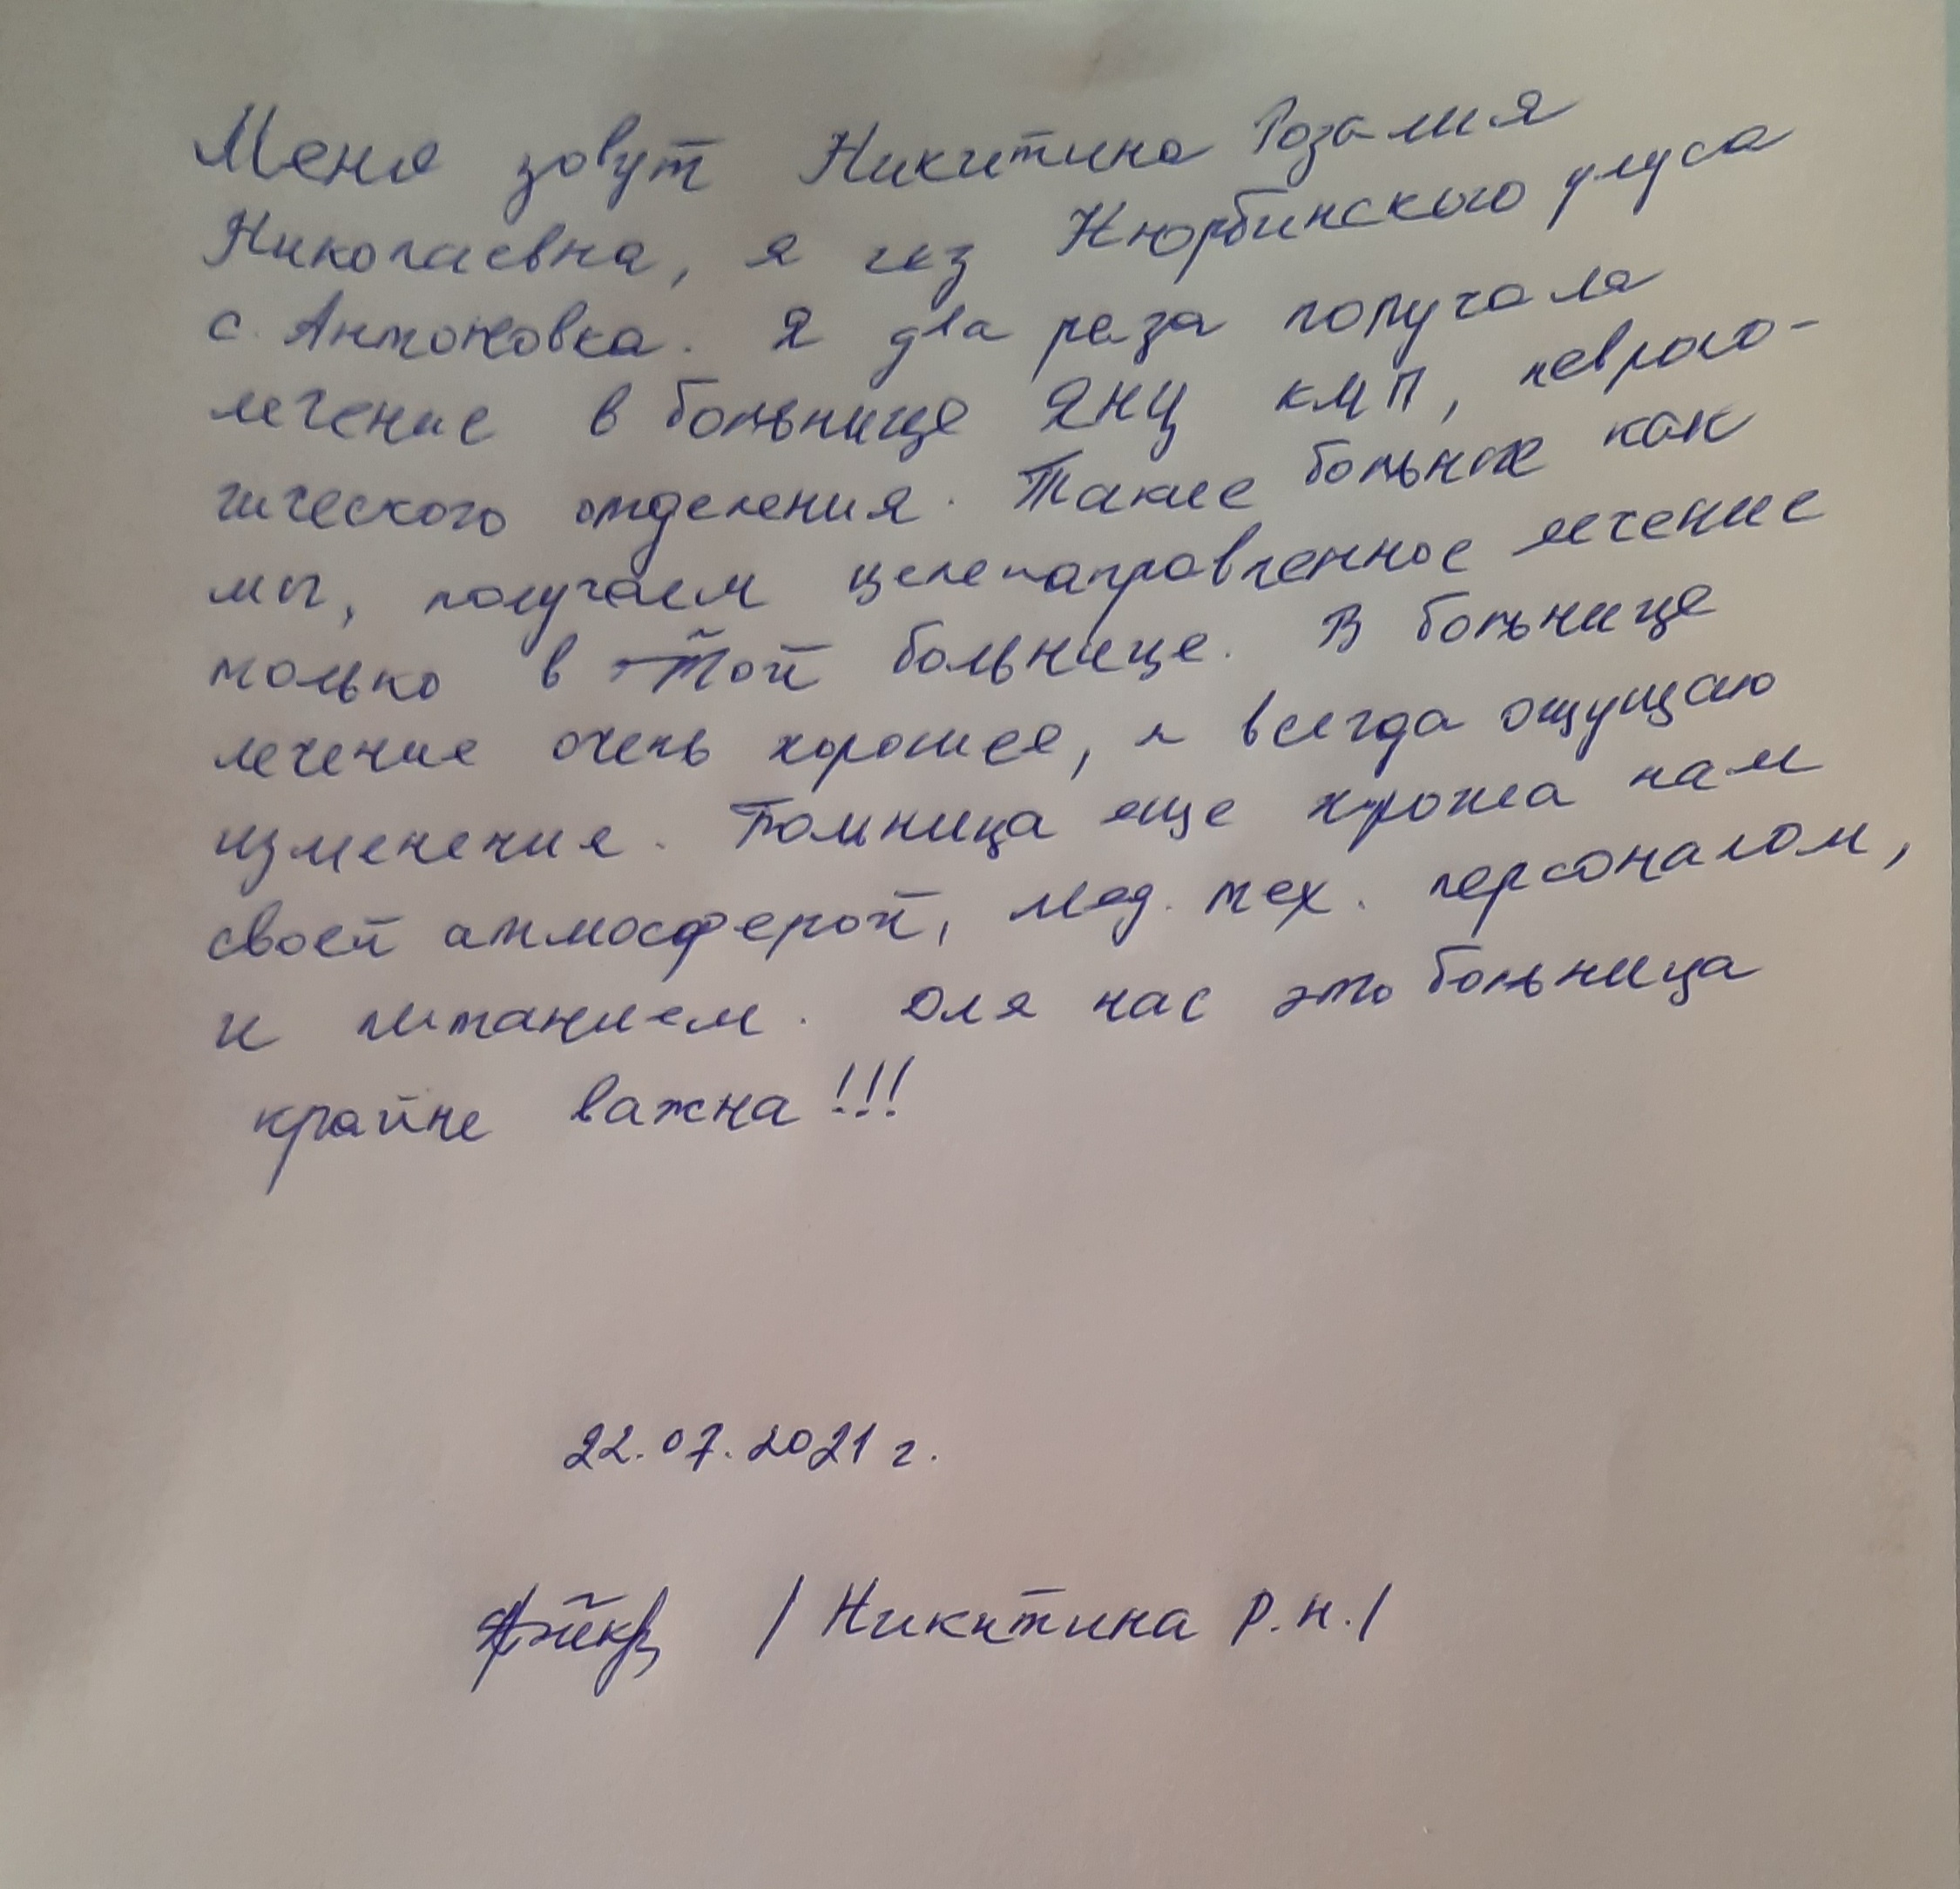 Меня зовут Никитина Розалия
Николаевна, я из Нюрбинского улуса
с. Антоновка. Я два раза получала
лечение в больнице ЯНЦ КМП, невроло-
гического отделения. Такие больные как
мы, получаем целенаправленное лечение
только в той больнице. В больнице
лечение очень хорошее, я всегда ощущаю
изменение. Больница еще хороша нам
своей атмосферой, мед. тех. персоналом,
и питанием. Для нас это больница
крайне важна!!!
22.07.2021 г.
/Никитина Р.Н./